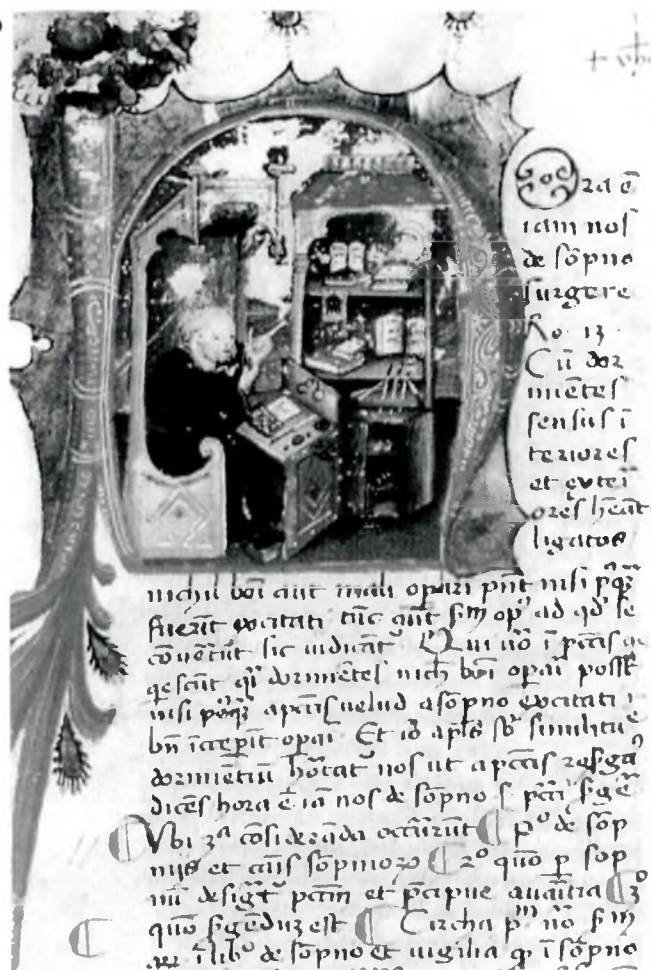 Ora ē
iam nos
de sōpno
surgere
Ro 13.
Cū dor
mientes
sensus ī
teriores
et exteri
ores hēāt
ligatos
nichil boī aut mali opari pn̄t nisi pꝰqꝫ
fuerīt excitati tūc aūt ſm opꝰ ad qđ se
cōuertūt sic iudicāt Qui uō ī pccīs
qescūt qi dormiētes nich boī opai poss̄t
nisi pꝰqꝫ a pccīs uelud a sōpno excitati
bn̄ īceperīt opai Et iō apl̄s sb̄ simil
dormiētiū hortat nos ut a pccīs
dicēs hora ē iā nos de sōpno s. pccī s̄gē
Vbi 3ᵃ cōsiderāda occurrūt ¶ pº de sōp
nijs et cūis sōpnioꝝ ¶ 2º quō p sop
nū desigt pccm et p̄cipue auaritia ¶ 3º
quō s̄gēduꝫ est ¶ Circha pᵐ nō ſm
ī libº de sōpno et uigilia ꝙ ī sōpno